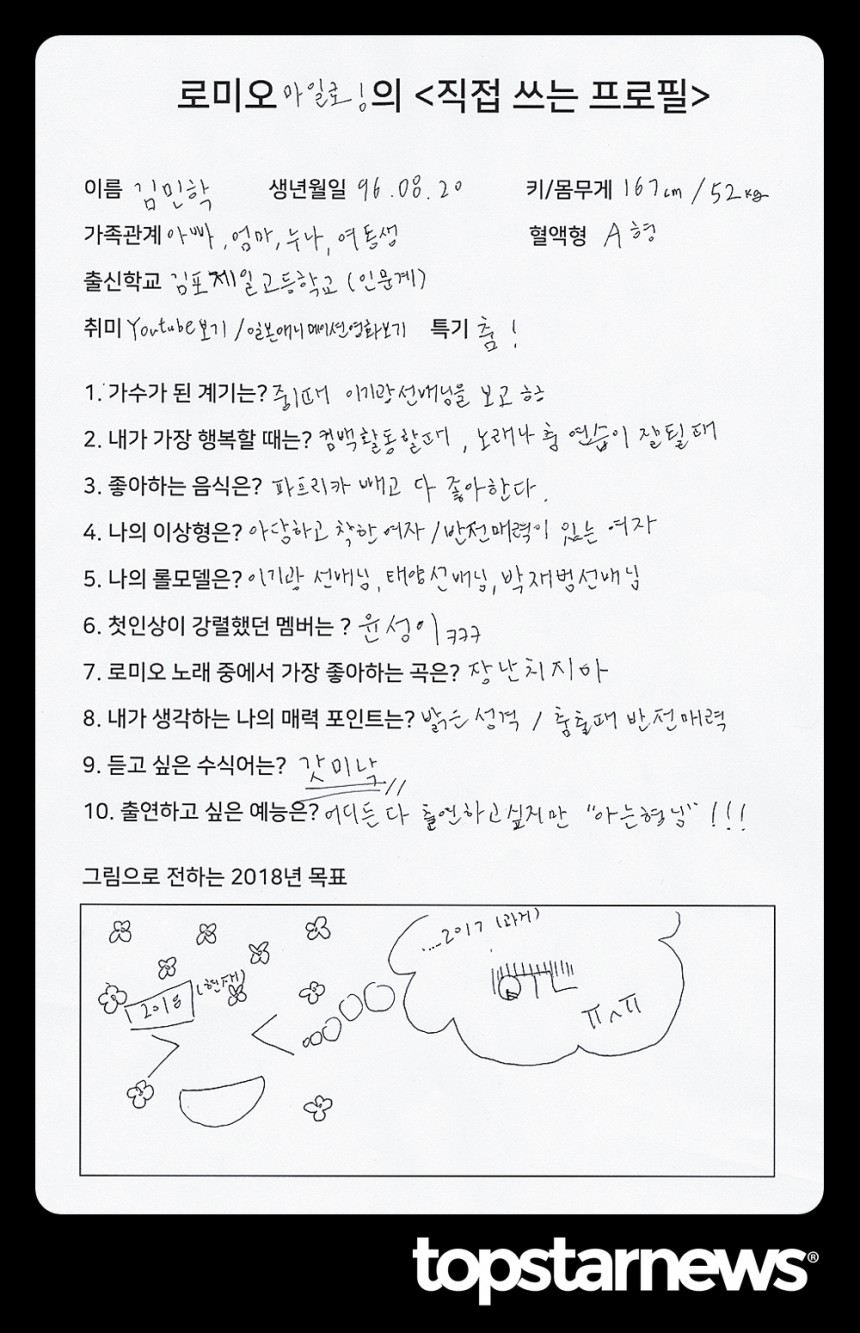 로미오 마일로!의 <직접 쓰는 프로필>
이름 김민학 생년월일 96.08.20 키/몸무게 167cm / 52kg
가족관계 아빠, 엄마, 누나, 여동생 혈액형 A형
출신학교 김포제일고등학교 (인문계)
취미 Youtube보기 / 일본애니메이션영화보기 특기 춤!
1. 가수가 된 계기는? 중1때 이기광선배님을 보고 ㅎㅎ
2. 내가 가장 행복할 때는? 컴백활동할때, 노래나 춤 연습이 잘될때
3. 좋아하는 음식은? 파프리카 빼고 다 좋아한다.
4. 나의 이상형은? 아담하고 착한 여자 / 반전매력이 있는 여자
5. 나의 롤모델은? 이기광 선배님, 태양선배님, 박재범선배님
6. 첫인상이 강렬했던 멤버는 ? 윤성이 ㅋㅋㅋ
7. 로미오 노래 중에서 가장 좋아하는 곡은? 장난치지마
8. 내가 생각하는 나의 매력 포인트는? 밝은 성격 / 춤출때 반전매력
9. 듣고 싶은 수식어는? 갓미낙
10. 출연하고 싶은 예능은? 어디든 다 출연하고싶지만 "아는형님" !!!
그림으로 전하는 2018년 목표
....2017 (과거)
2018 (현재)
OTL
ㅠㅅㅠ
topstarnews®